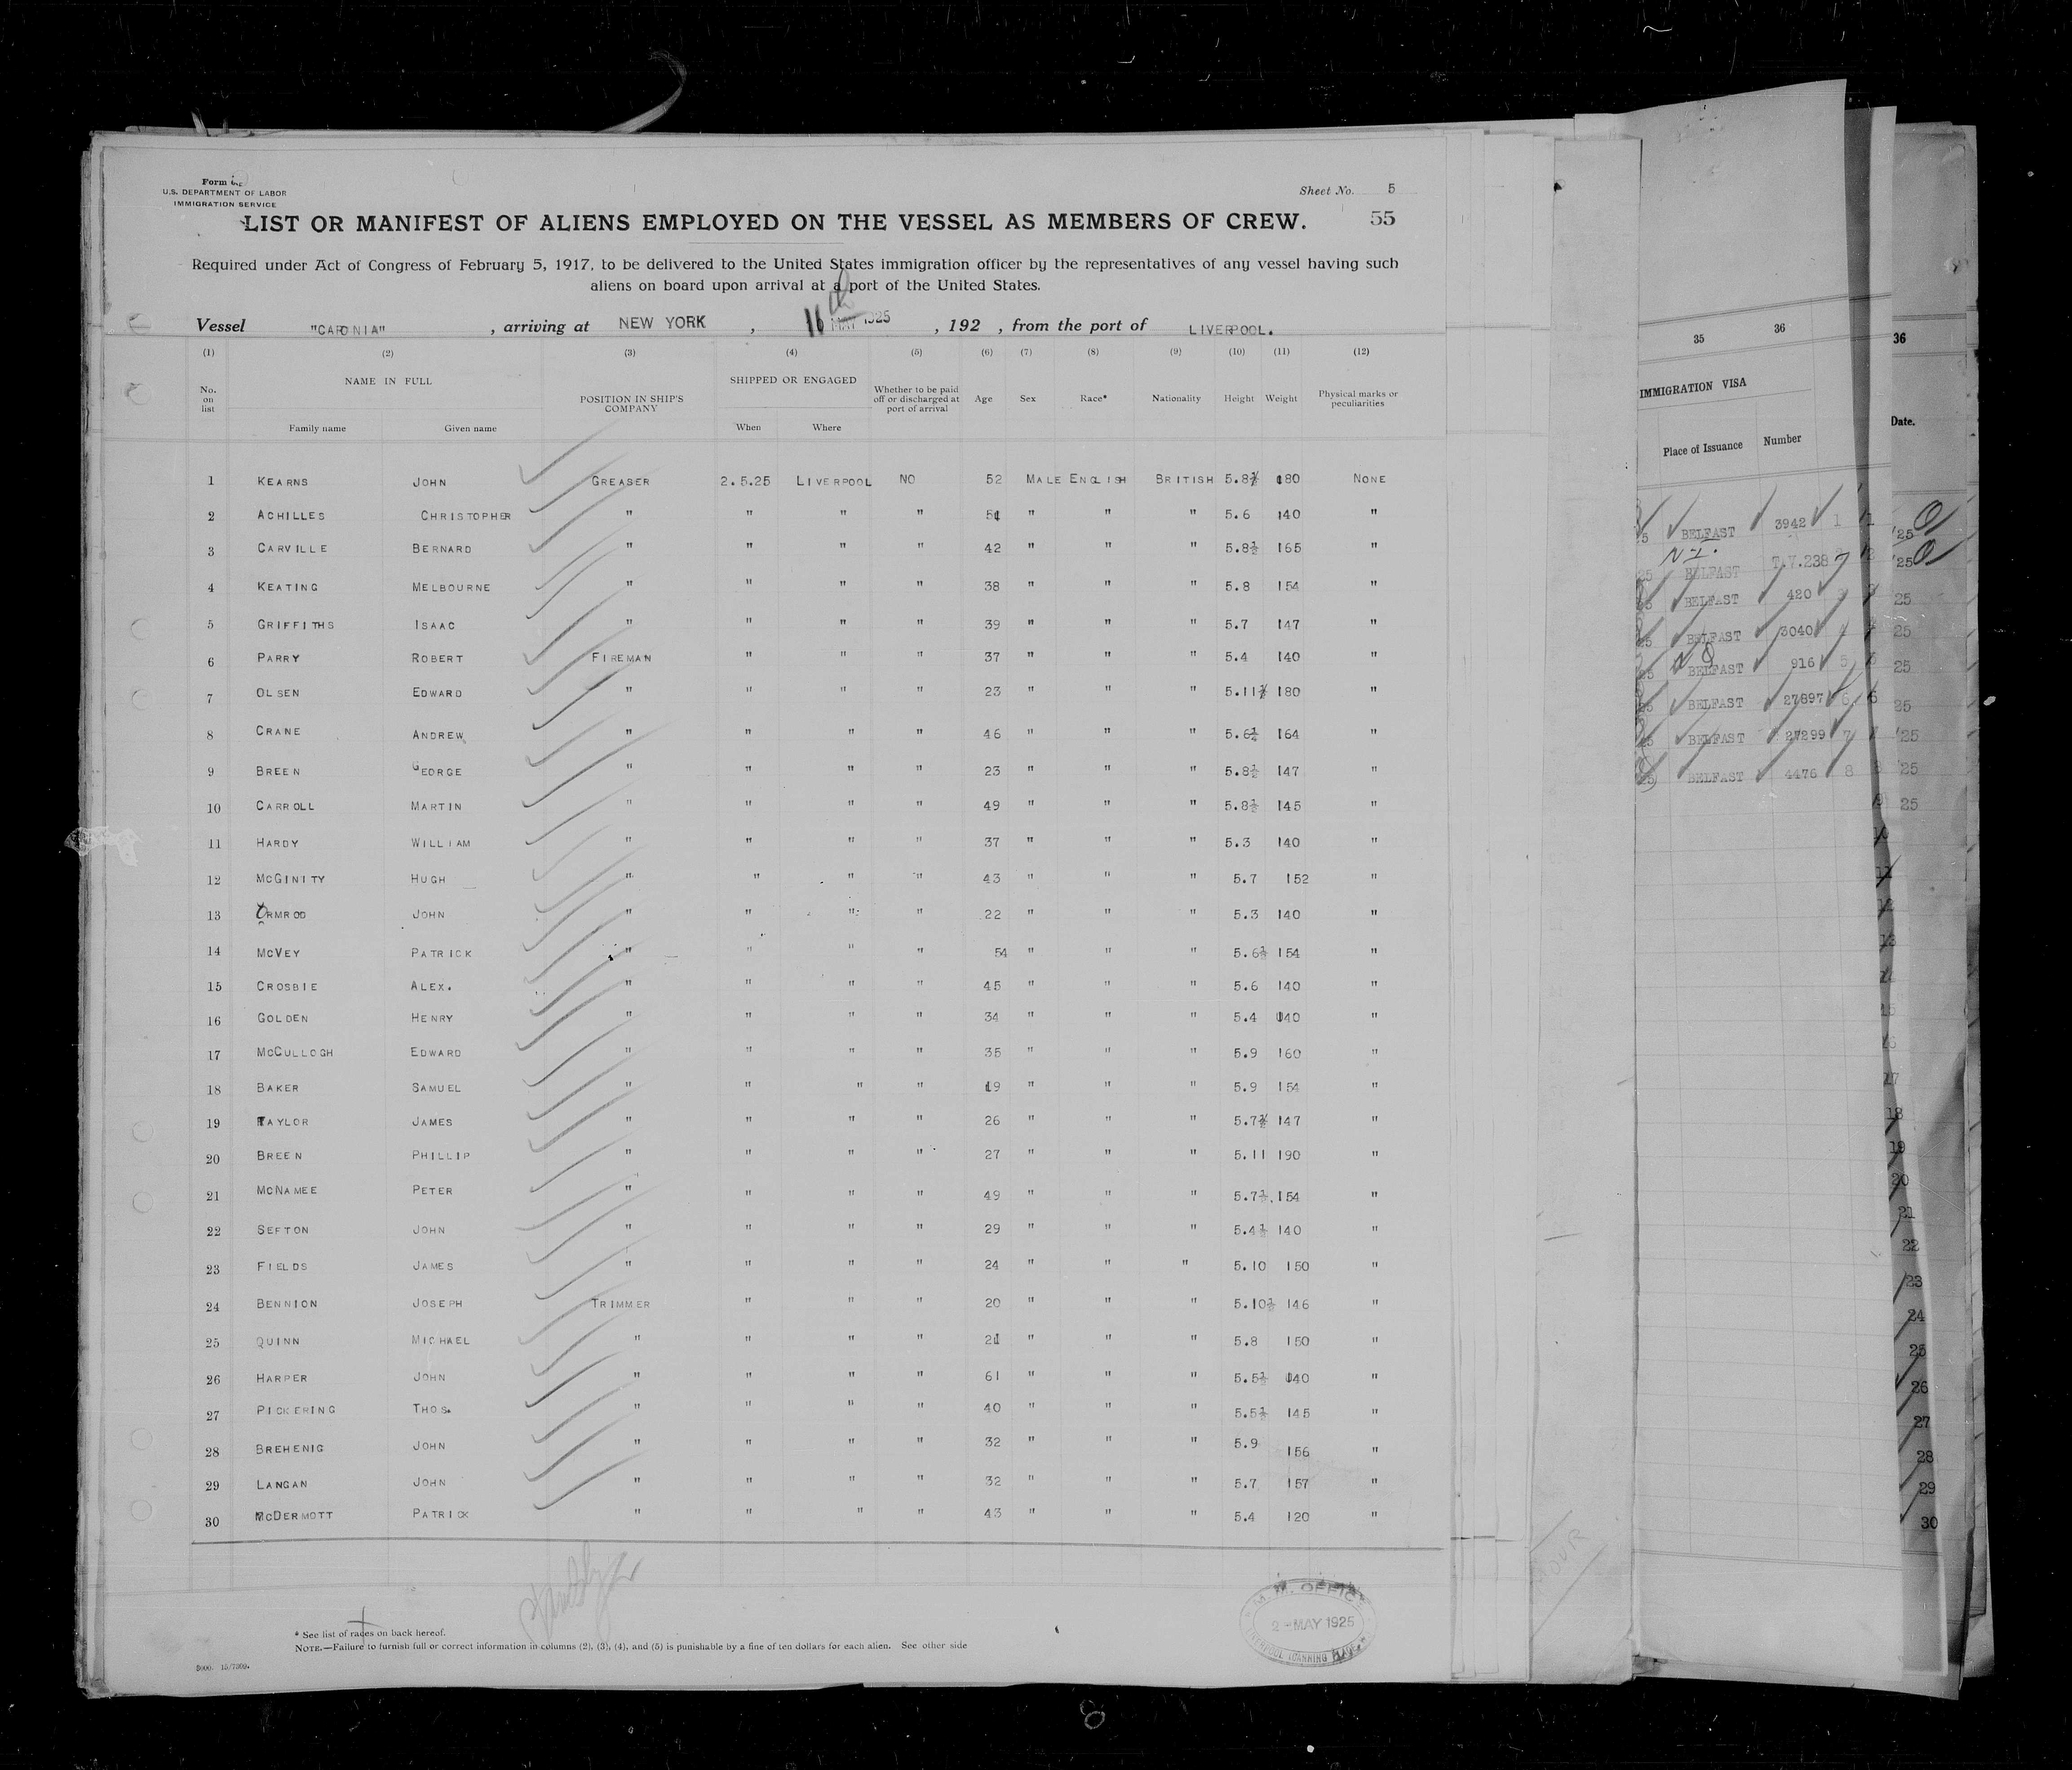 Form
U.S. DEPARTMENT OF LABOR
IMMIGRATION SERVICE
Sheet No. 5
55
LIST OR MANIFEST OF ALIENS EMPLOYED ON THE VESSEL AS MEMBERS OF CREW.
Required under Act of Congress of February 5, 1917, to be delivered to the United States immigration officer by the representatives of any vessel having such
aliens on board upon arrival at a port of the United States.
Vessel "CARONIA" , arriving at NEW YORK , 16th MAY 1925 , 192 , from the port of LIVERPOOL.
(1) (2) (3) (4) (5) (6) (7) (8) (9) (10) (11) (12)
No. on list NAME IN FULL POSITION IN SHIP'S COMPANY SHIPPED OR ENGAGED Whether to be paid off or discharged at port of arrival Age Sex Race* Nationality Height Weight Physical marks or peculiarities
Family name Given name When Where
1 KEARNS JOHN GREASER 2.5.25 LIVERPOOL NO 52 MALE ENGLISH BRITISH 5.8½ 180 NONE
2 ACHILLES CHRISTOPHER " " " " 51 " " " 5.6 140 "
3 CARVILLE BERNARD " " " " 42 " " " 5.8½ 165 "
4 KEATING MELBOURNE " " " " 38 " " " 5.8 154 "
5 GRIFFITHS ISAAC " " " " 39 " " " 5.7 147 "
6 PARRY ROBERT FIREMAN " " " 37 " " " 5.4 140 "
7 OLSEN EDWARD " " " " 23 " " " 5.11½ 180 "
8 CRANE ANDREW " " " " 46 " " " 5.6½ 164 "
9 BREEN GEORGE " " " " 23 " " " 5.8½ 147 "
10 CARROLL MARTIN " " " " 49 " " " 5.8½ 145 "
11 HARDY WILLIAM " " " " 37 " " " 5.3 140 "
12 MCGINITY HUGH " " " " 43 " " " 5.7 152 "
13 ORMROD JOHN " " " " 22 " " " 5.3 140 "
14 MCVEY PATRICK " " " " 54 " " " 5.6½ 154 "
15 CROSBIE ALEX. " " " " 45 " " " 5.6 140 "
16 GOLDEN HENRY " " " " 34 " " " 5.4 140 "
17 MCCULLOGH EDWARD " " " " 35 " " " 5.9 160 "
18 BAKER SAMUEL " " " " 19 " " " 5.9 154 "
19 TAYLOR JAMES " " " " 26 " " " 5.7½ 147 "
20 BREEN PHILLIP " " " " 27 " " " 5.11 190 "
21 MCNAMEE PETER " " " " 49 " " " 5.7½ 154 "
22 SEFTON JOHN " " " " 29 " " " 5.4½ 140 "
23 FIELDS JAMES " " " " 24 " " " 5.10 150 "
24 BENNION JOSEPH TRIMMER " " " 20 " " " 5.10½ 146 "
25 QUINN MICHAEL " " " " 21 " " " 5.8 150 "
26 HARPER JOHN " " " " 61 " " " 5.5½ 140 "
27 PICKERING THOS. " " " " 40 " " " 5.5½ 145 "
28 BREHENIG JOHN " " " " 32 " " " 5.9 156 "
29 LANGAN JOHN " " " " 32 " " " 5.7 157 "
30 MCDERMOTT PATRICK " " " " 43 " " " 5.4 120 "
* See list of races on back hereof.
NOTE.—Failure to furnish full or correct information in columns (2), (3), (4), and (5) is punishable by a fine of ten dollars for each alien. See other side
M.M. OFFICE
2 - MAY 1925
35 36
IMMIGRATION VISA
Place of Issuance Number
BELFAST 3942 1
N I.
BELFAST T.V.238
BELFAST 420
BELFAST 3040 4
BELFAST 916 5
BELFAST 27897 6
BELFAST 27299 7
BELFAST 4476 8
36
Date.
'25
'25
25
25
25
25
'25
'25
25
17
18
19
20
21
22
23
24
25
26
27
28
29
30
8